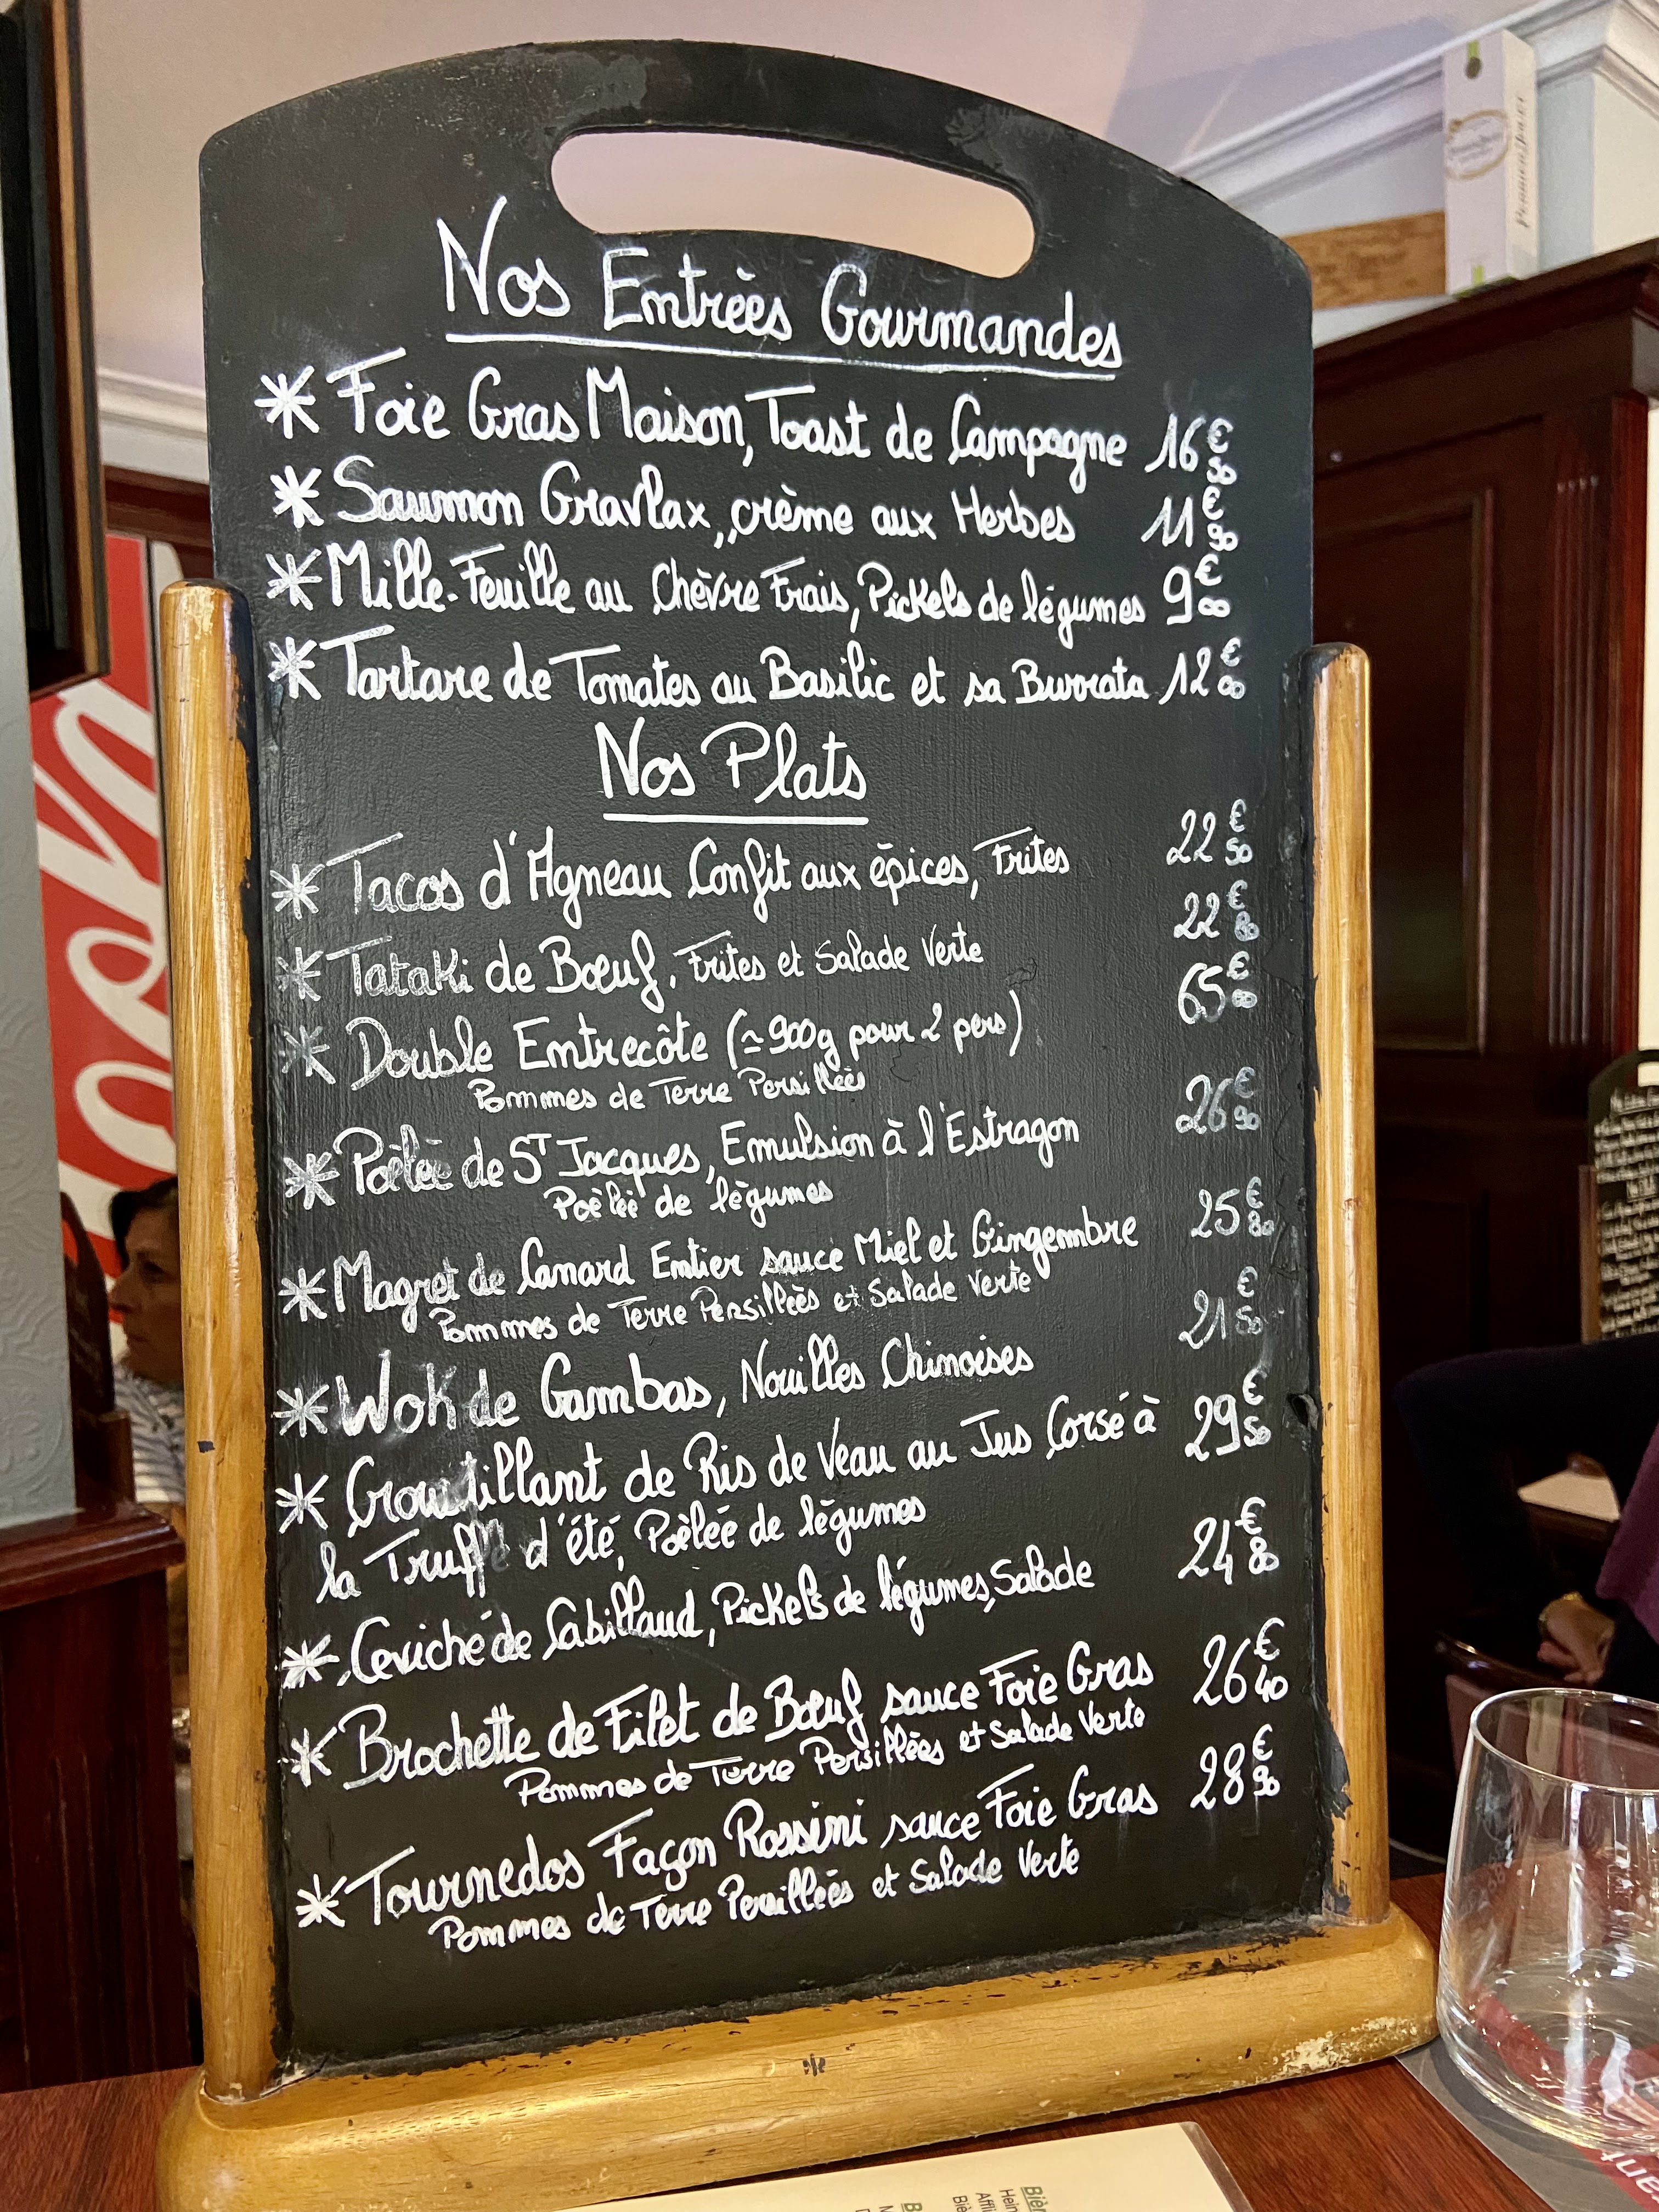 Nos Entrées Gourmandes
* Foie Gras Maison, Toast de Campagne 16€50
* Saumon Gravlax, crème aux Herbes 11€90
* Mille-Feuille au Chèvre Frais, Pickels de légumes 9€00
* Tartare de Tomates au Basilic et sa Burrata 12€00
Nos Plats
* Tacos d'Agneau Confit aux épices, Frites 22€50
* Tataki de Bœuf, Frites et Salade Verte 22€80
* Double Entrecôte (≃900g pour 2 pers) 65€00
Pommes de Terre Persillées
* Poêlée de ST Jacques, Emulsion à l'Estragon 26€90
Poêlée de légumes
* Magret de Canard Entier sauce Miel et Gingembre 25€80
Pommes de Terre Persillées et Salade Verte
* Wok de Gambas, Nouilles Chinoises 21€50
* Croustillant de Ris de Veau au Jus Corsé à 29€50
la Truffe d'été, Poêlée de légumes
* Ceviche de Cabillaud, Pickels de légumes, Salade 24€80
* Brochette de Filet de Bœuf sauce Foie Gras 26€40
Pommes de Terre Persillées et Salade Verte
* Tournedos Façon Rossini sauce Foie Gras 28€90
Pommes de Terre Persillées et Salade Verte